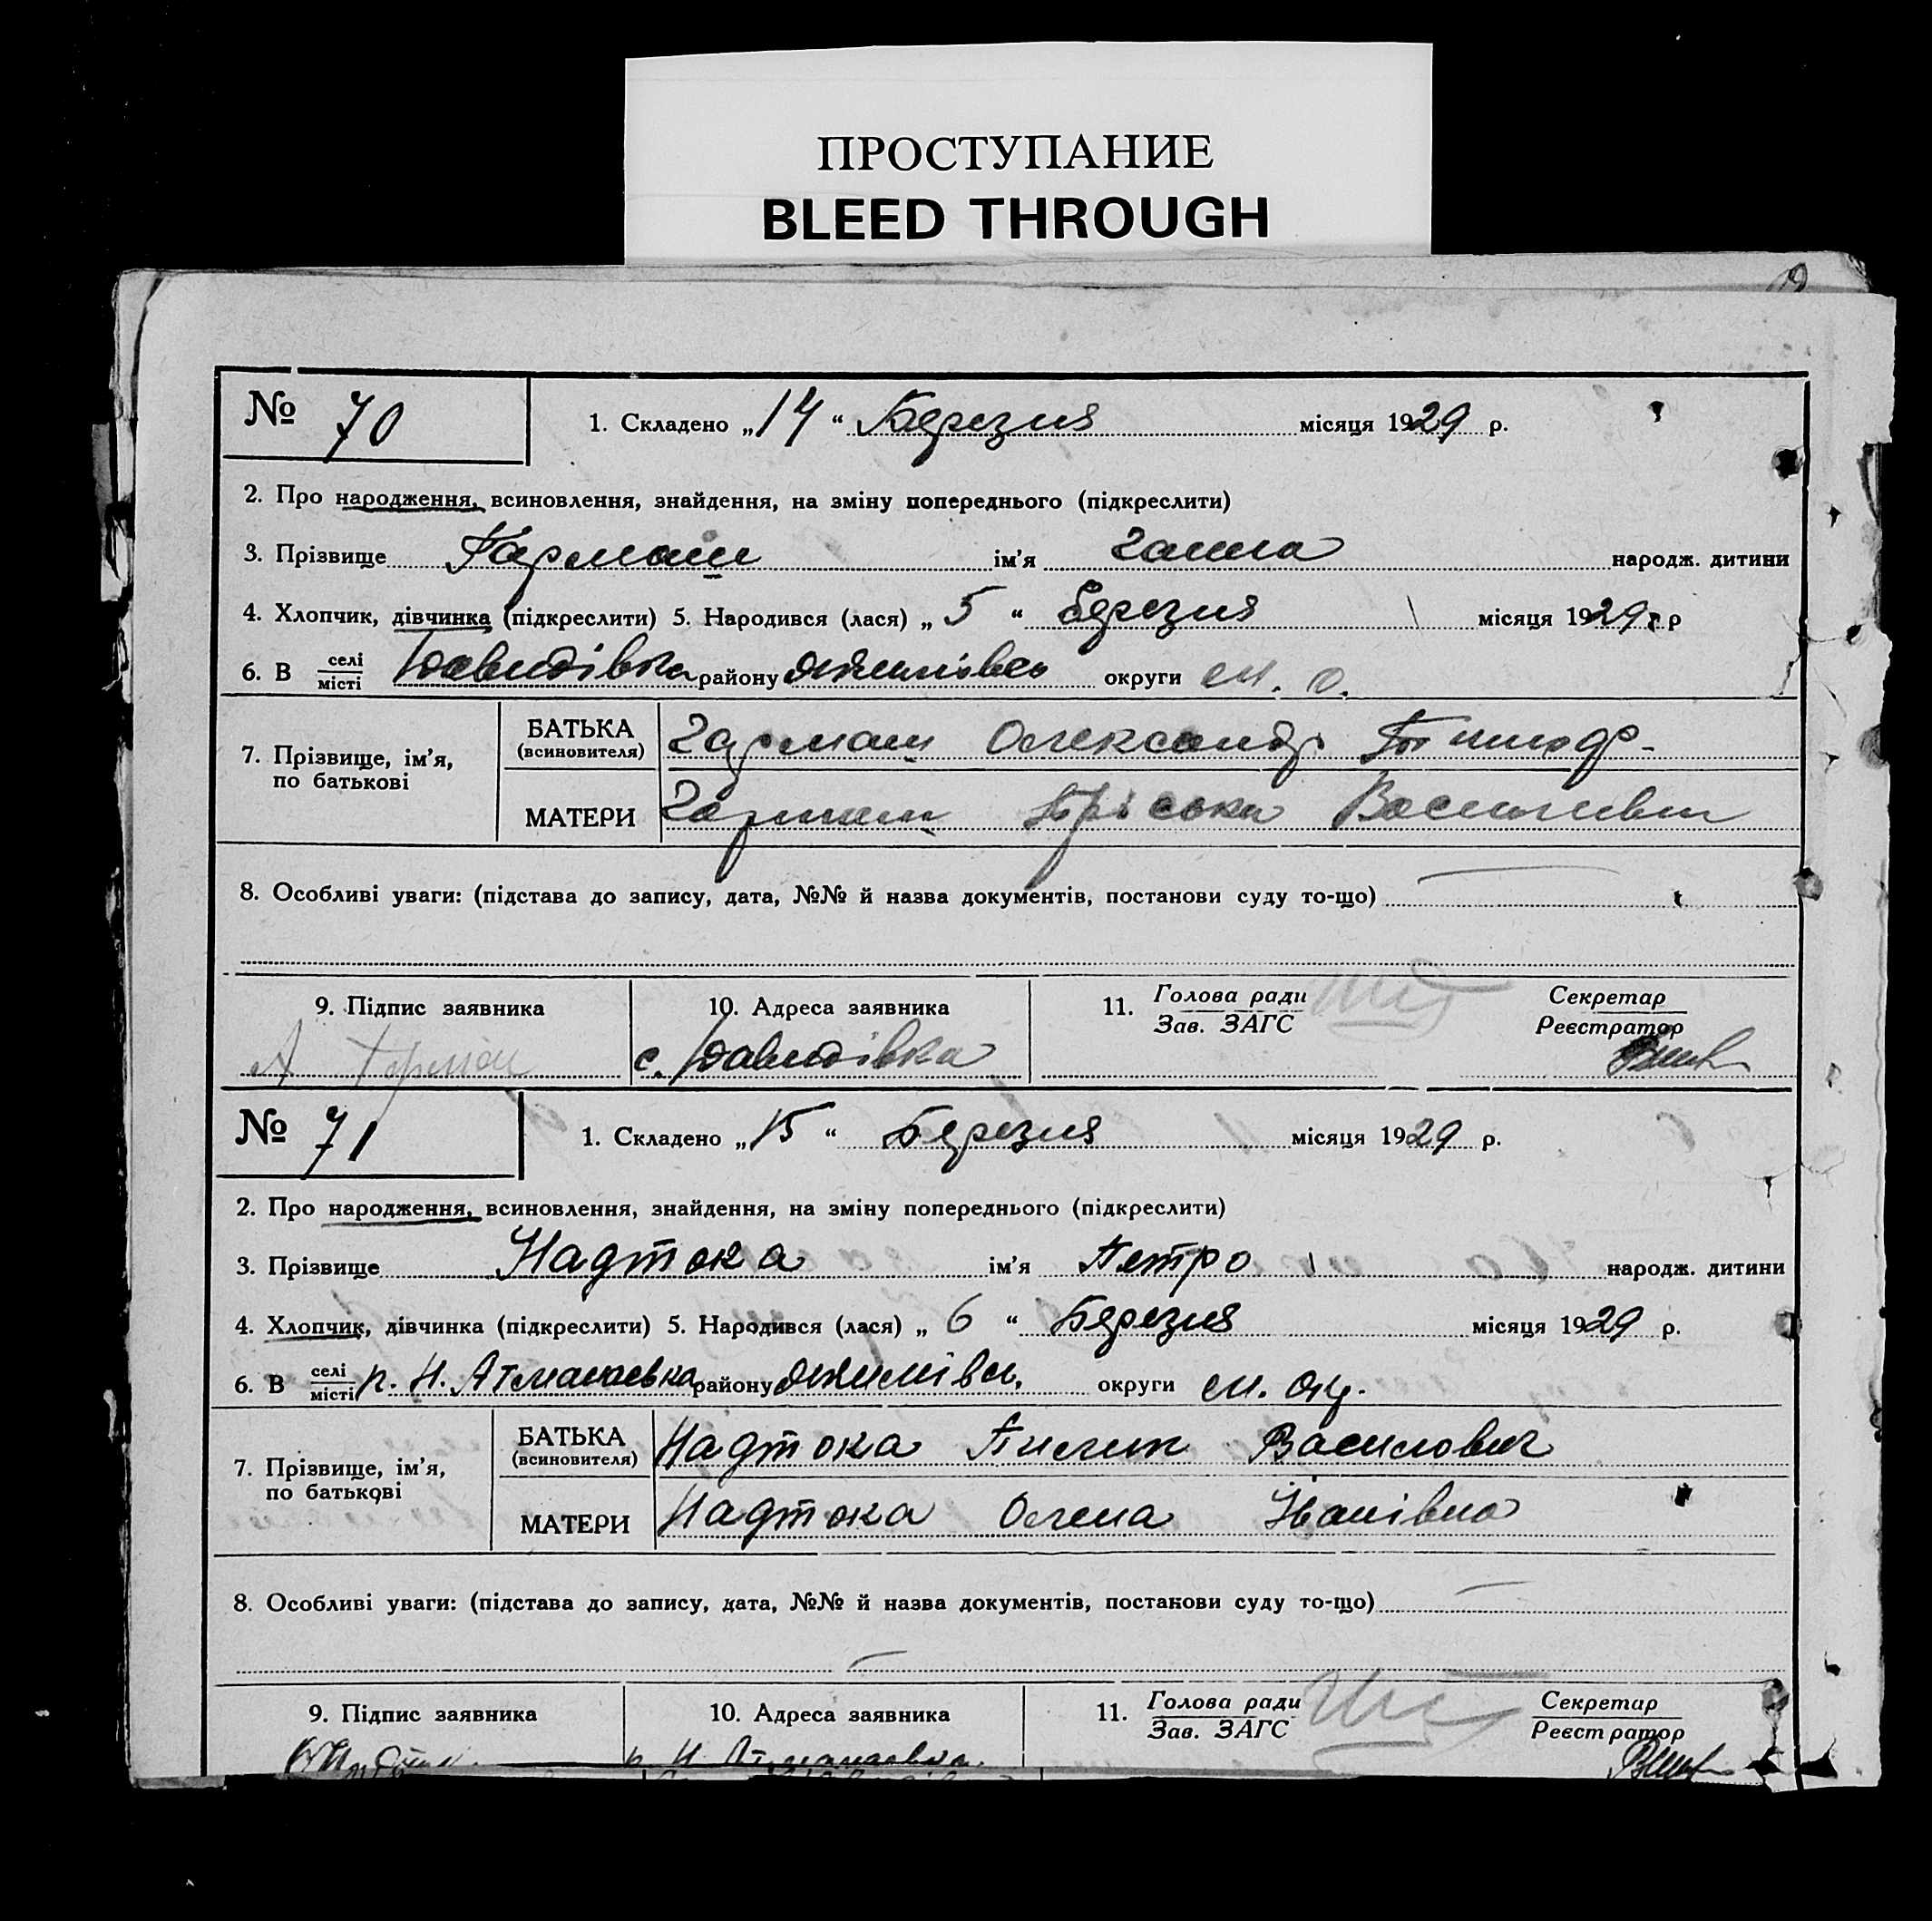 ПРОСТУПАНИЕ
BLEED THROUGH
№ 70 1. Складено „14“ Березня місяця 1929 р.
2. Про народження, всиновлення, знайдення, на зміну попереднього (підкреслити)
3. Прізвище Гармаш ім’я Ганна народж. дитини
4. Хлопчик, дівчинка (підкреслити) 5. Народився (лася) „5“ Березня місяця 1929 р
6. В селі/місті Давидівка району округи М. О.
7. Прізвище, ім’я, по батькові
БАТЬКА (всиновителя) Гармаш Олександр
МАТЕРИ Гармаш Пріська Василивна
8. Особливі уваги: (підстава до запису, дата, №№ й назва документів, постанови суду то-що)
9. Підпис заявника 10. Адреса заявника 11. Голова ради/Зав. ЗАГС Секретар/Реєстратор
А Гармаш с. Давидівка
№ 71 1. Складено „15“ Березня місяця 1929 р.
2. Про народження, всиновлення, знайдення, на зміну попереднього (підкреслити)
3. Прізвище Надтока ім’я Петро народж. дитини
4. Хлопчик, дівчинка (підкреслити) 5. Народився (лася) „6“ Березня місяця 1929 р.
6. В селі/місті п. Н. Атманаевка району округи М. Ок.
7. Прізвище, ім’я, по батькові
БАТЬКА (всиновителя) Надтока Пилип Василович
МАТЕРИ Надтока Олена Іванівна
8. Особливі уваги: (підстава до запису, дата, №№ й назва документів, постанови суду то-що)
9. Підпис заявника 10. Адреса заявника 11. Голова ради/Зав. ЗАГС Секретар/Реєстратор
п. Н. Атманаевка